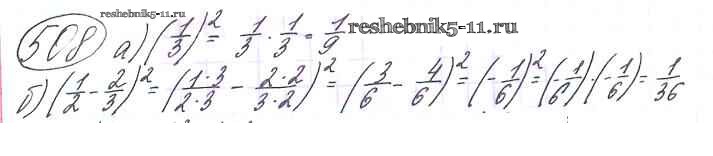 reshebnik5-11.ru
508 а) (1/3)² = 1/3 · 1/3 = 1/9
reshebnik5-11.ru
б) (1/2 - 2/3)² = (1·3/2·3 - 2·2/3·2)² = (3/6 - 4/6)² = (-1/6)² = (-1/6)·(-1/6) = 1/36